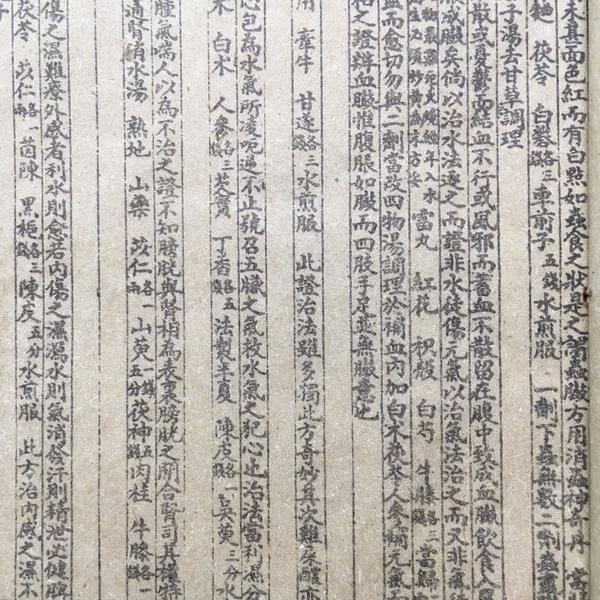 未甚面色紅而有白點如蟲食之狀是之謂蟲臌方用消蟲神奇丹 當歸
茯苓 白礬各三錢 車前子五錢 水煎服 一劑下蟲無數二劑蟲盡
子湯去甘草調理
散或憂鬱而結血不行或風邪而蓄血不散留在腹中致成血臌飲食入胃
成臌矣倘以治水法逐之而證非水徒傷元氣以治氣法治之而又非氣
炒黃為末 入水 雷丸 紅花 枳殼 白芍 牛膝各三錢 當歸
血而愈切勿與二劑當改四物湯調理於補血內加白朮茯苓人參補元氣
之證辨血臌惟腹脹如臌而四肢手足並無臌意也
用 牽牛 甘遂各三錢 水煎服 此證治法雖多獨此方奇妙其次雞屎醴亦
心包為水氣所凌呃逆不止號召五臟之氣救水氣之犯心也治法當利濕分
白朮 人參各三錢 芡實 丁香各五 法製半夏 陳皮各一錢 吳萸三分 水
腫氣喘人以為不治之證不知膀胱與腎相為表裏膀胱之開合腎司其權特
通腎消水湯 熟地 山藥 苡仁各一兩 山萸一錢五分 茯神五錢 肉桂 牛膝各一
傷之濕難療外感者利水則愈若內傷之濕瀉水則氣消發汗則精泄必健脾
茯苓 苡仁各一兩 茵陳 黑梔各三錢 陳皮五分 水煎服 此方治內感之濕不